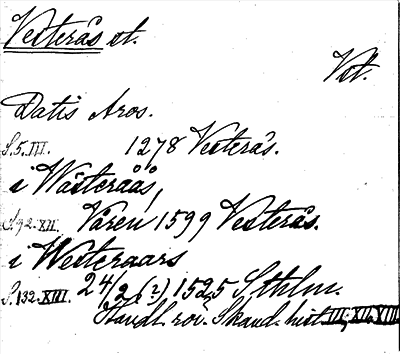 Vesterås st.
Vst.
Datis Aros.
S. 5. III. 1278 Vesterås.
i Wästeråås,
S. 92. XII. Våren 1599 Vesterås.
i Westeraars
S. 132. XIII. 24/2 (?) 1525 Sthlm.
Handl. rör. Skand. hist. III, XII, XIII